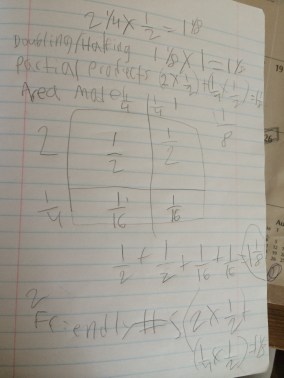 2 1/4 × 1/2 = 1 1/8
Doubling/Halving 1 1/8 × 1 = 1 1/8
Partial Products (2 × 1/2) + (1/4 × 1/2) = 1 1/8
Area Model 1/4 1/4 1
1/8
2 1/2 1/2
1/4 1/16 1/16
1/2 + 1/2 + 1/16 + 1/16 = 1 1/8
2
Friendly #s (2 × 1/2) +
(1/4 × 1/2) = 1 1/8
19
26